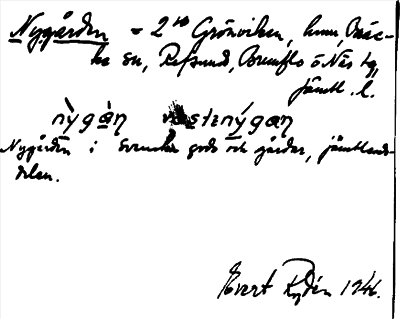 Nygården = 2 no Grönviken, hmn, Bräc-
ke sn, Refsund, Brunflo o Näs tg,
Jämtl. l.
nỳgàŋ västnýgaŋ
Nygården i Svenska gods och gårdar, jämtlands-
delen.
Evert Rydén 1946.